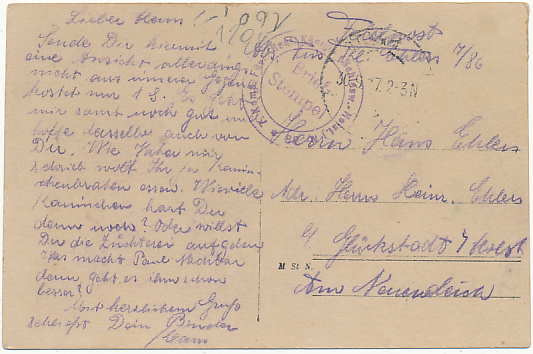 Lieber Hans!
Sende Dir hiermit
eine Ansicht allerdings
nicht aus unserer Gegend
kostet nur 1 S. Es geht
mir sonst noch gut und
hoffe dasselbe auch von
Dir. Wie Vater mir
schrieb wollt Ihr ja Kanin-
chenbraten essen. Wieviele
Kaninchen hast Du
denn noch? Oder willst
Du die Züchterei aufgeben
Was macht Paul
denn geht es ihm schon
besser?
Mit herzlichem Gruß
schließt Dein Bruder
Feldpost
Abs. Ehlers 7/86
Briefstempel
7.2-3N
Herrn Hans Ehlers
Adr. Herrn Heinr. Ehlers
Glückstadt / Holst
M St N.
Am Neuendeich